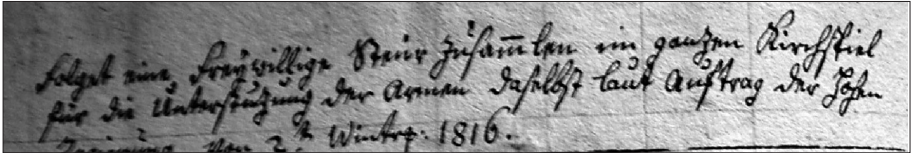 Folget eine Freywillige Steür zusam̅len im ganzen Kirchspiel
für die Unterstüzung der Armen daselbst laut Auftrag der Hohen
Regierung von 2.t Wintrm: 1816.